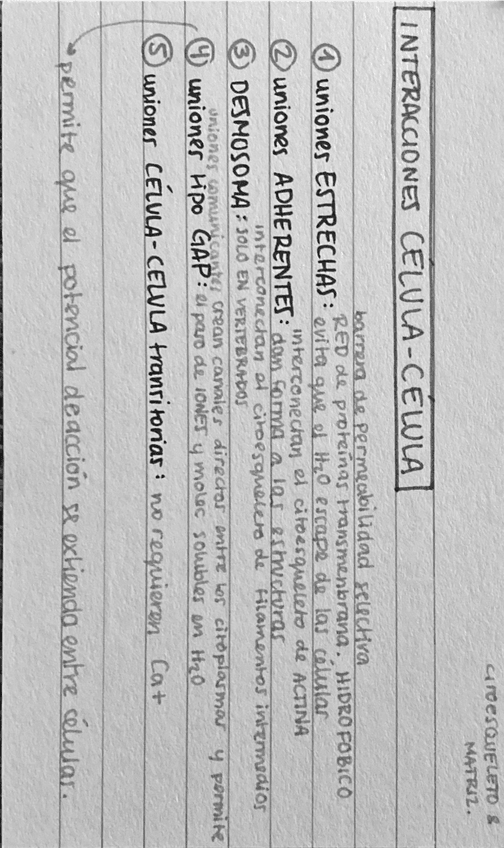 CITOESQUELETO &
MATRIZ.
INTERACCIONES CÉLULA-CÉLULA
barrera de permeabilidad selectiva
RED de proteinas transmenbrana. HIDROFOBICO
① uniones ESTRECHAS: evita que el H2O escape de las células
interconectan el citoesqueleto de ACTINA
② uniones ADHERENTES: dan forma a las estructuras
interconectan el citoesqueleto de filamentos intermedios
③ DESMOSOMA: SOLO EN VERTEBRADOS
uniones comunicantes crean canales directos entre los citoplasmas y permite
④ uniones tipo GAP: el paso de IONES y molec solubles en H2O
⑤ uniones CÉLULA-CELULA transitorias: no requieren Ca+
permite que el potencial de acción se extienda entre células.